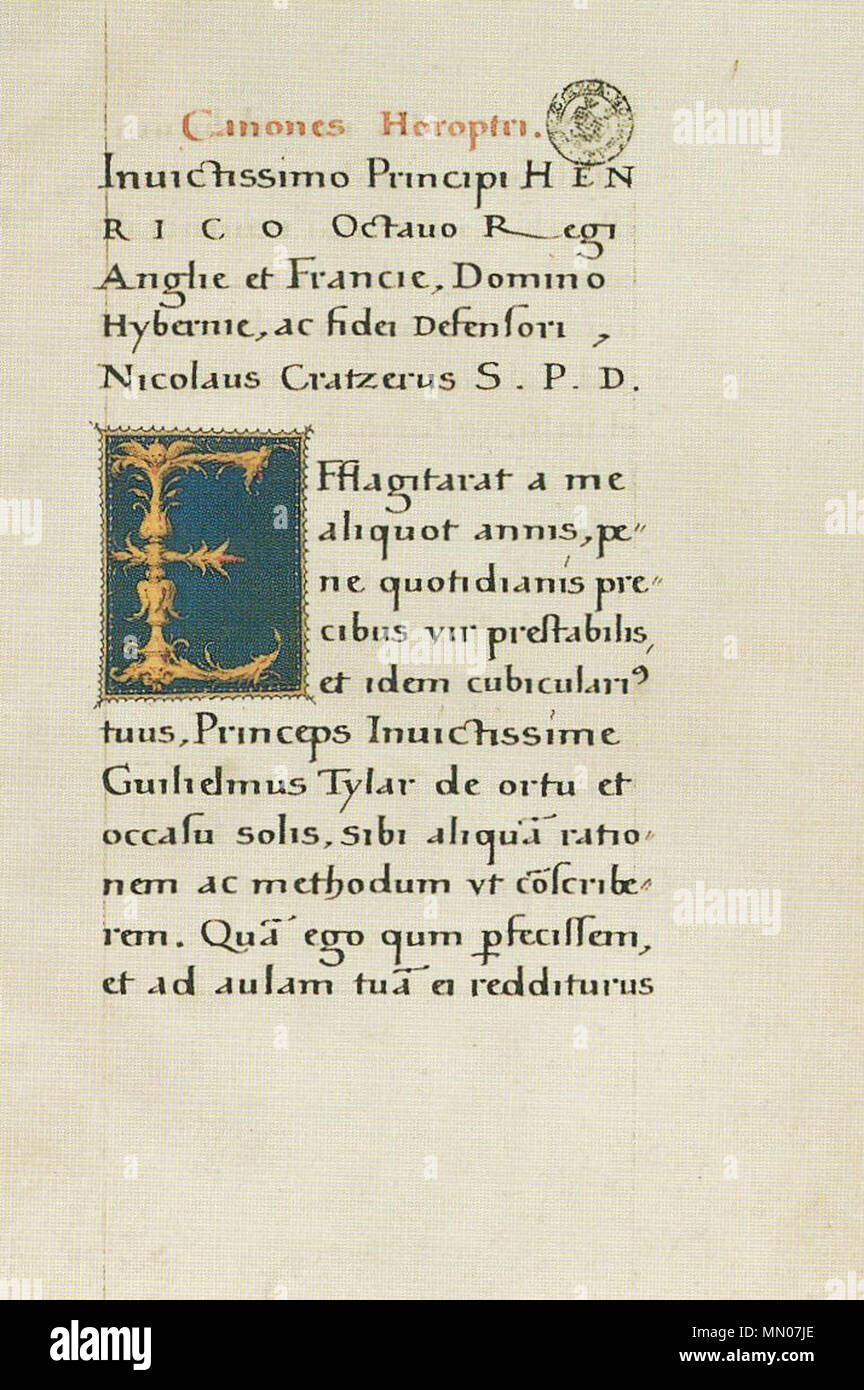 Canones Horoptri.
Inuictissimo Principi HEN
RICO Octauo Regi
Anglie et Francie, Domino
Hybernie, ac fidei Defensori ,
Nicolaus Cratzerus S . P . D .
EFflagitarat a me
aliquot annis, pe〃
ne quotidianis pre〃
cibus vir prestabilis,
et idem cubiculariꝰ
tuus, Princeps Inuictissime
Guilielmus Tylar de ortu et
occaſu solis, sibi aliquā ratio〃
nem ac methodum vt cōſcribe〃
rem. Quā ego qum ꝑfeciſſem,
et ad aulam tuā ei redditurus
alamy
Image ID: MN07JE
www.alamy.com